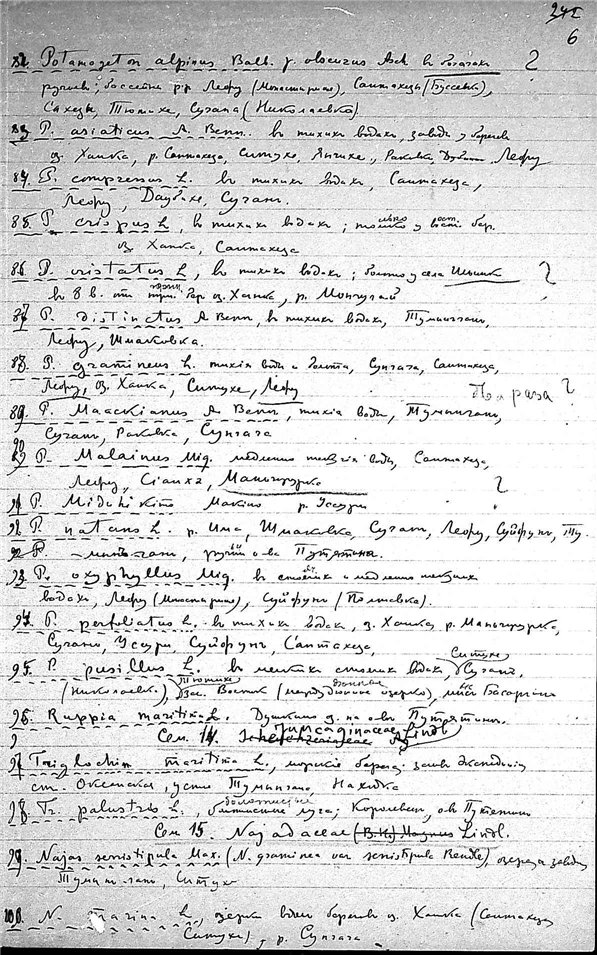 242
6
82. Potamogeton alpinus Balb. f. obscurus Asch в
ручьев; бассейны р.р. Лефу (Монастырка), Сантахеза (Гуссевка),
Сахезы, Тютихе, Сучана (Николаевка)
83. P. asiaticus A. Benn. в тихих водах, заводи у берегов
оз. Ханка, р. Сантахеза, Ситухе, Янчихе, Раковка, Лефу
84. P. compressus L. в тихих водах, Сантахеза,
Лефу, Даубихе, Сучан.
85. P. crispus L, в тихих водах; только у вост. бер.
оз. Ханка, Сантахеза
86. P. cristatus L, в тихих водах; болото у села
в 8 в. от бер. оз. Ханка, р. Монгугай
87. P. distinctus A Benn, в тихих водах, Туминган,
Лефу, Шмаковка.
88. P. gramineus L. тихия воды и болота, Сунгача, Сантахеза,
Лефу, оз. Ханка, Ситухе, Лефу
два раза ?
89. P. Maackianus A. Benn, тихия воды, Туминган,
Сучан, Раковка, Сунгача
90 P. Malainus Miq. медленно текущия воды, Сантахеза,
Лефу, Сіанхэ, ?
91. P. Midzhikimo Макино р. Уссури
92. P. natans L. р. Има, Шмаковка, Сучан, Лефу, Суйфун, Ту-
минган, ручьи о-ва Путятина.
93. P. oxyphyllus Miq. в стоячих и медленно текущих
водах, Лефу (Монастырка), Суйфун (Полтавка).
94. P. perfoliatus L. в тихих водах, оз. Ханка,
Сучан, Уссури, Суйфун, Сантахеза,
95. P. pusillus L. в мелких стоячих водах, Ситухе, Сучан,
(Николаевка), Тютихе, Зал. Восток (озерко), мыс Басаргина
96. Ruppia maritima L. Душкино оз. на о-ве Путятин.
Сем. 14. Scheuchzeriaceae Juncaginaceae Lindl
97. Triglochin maritima L., морские берега. залив Экспедиции
ст. Океанская, устье Тумингана, Находка
98. Tr. palustris L., болотистые луга; Королевец, о-в Путятин
Сем 15. Najadaceae (B.K.) Magnus Lindl.
99. Najas semistipula Max. (N. graminea var semistipula Rendle), озера и заводи
Туминган, Ситухе
100. N. marina L, озерка вдоль берегов оз. Ханка (Сантахеза,
Ситухе), р. Сунгача